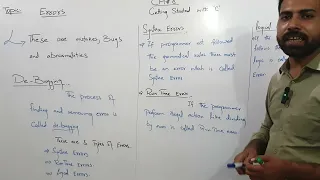 Topic Errors
These are mistakes, Bugs
and abnormalities
De-Bugging
The process of
finding and removing error is
Called de-bugging
There are 3 Types of Errors
Syntax Errors
Run Time Errors
Logical Errors
CH#3
Getting Started with "C"
Syntax Errors
If programmer not followed
the grammatical rules then must
be an error which is called
Syntax Error
Run Time Errors
If the programmer
perform illegal action like dividing
by zero is called Run Time Error
Logical
Error